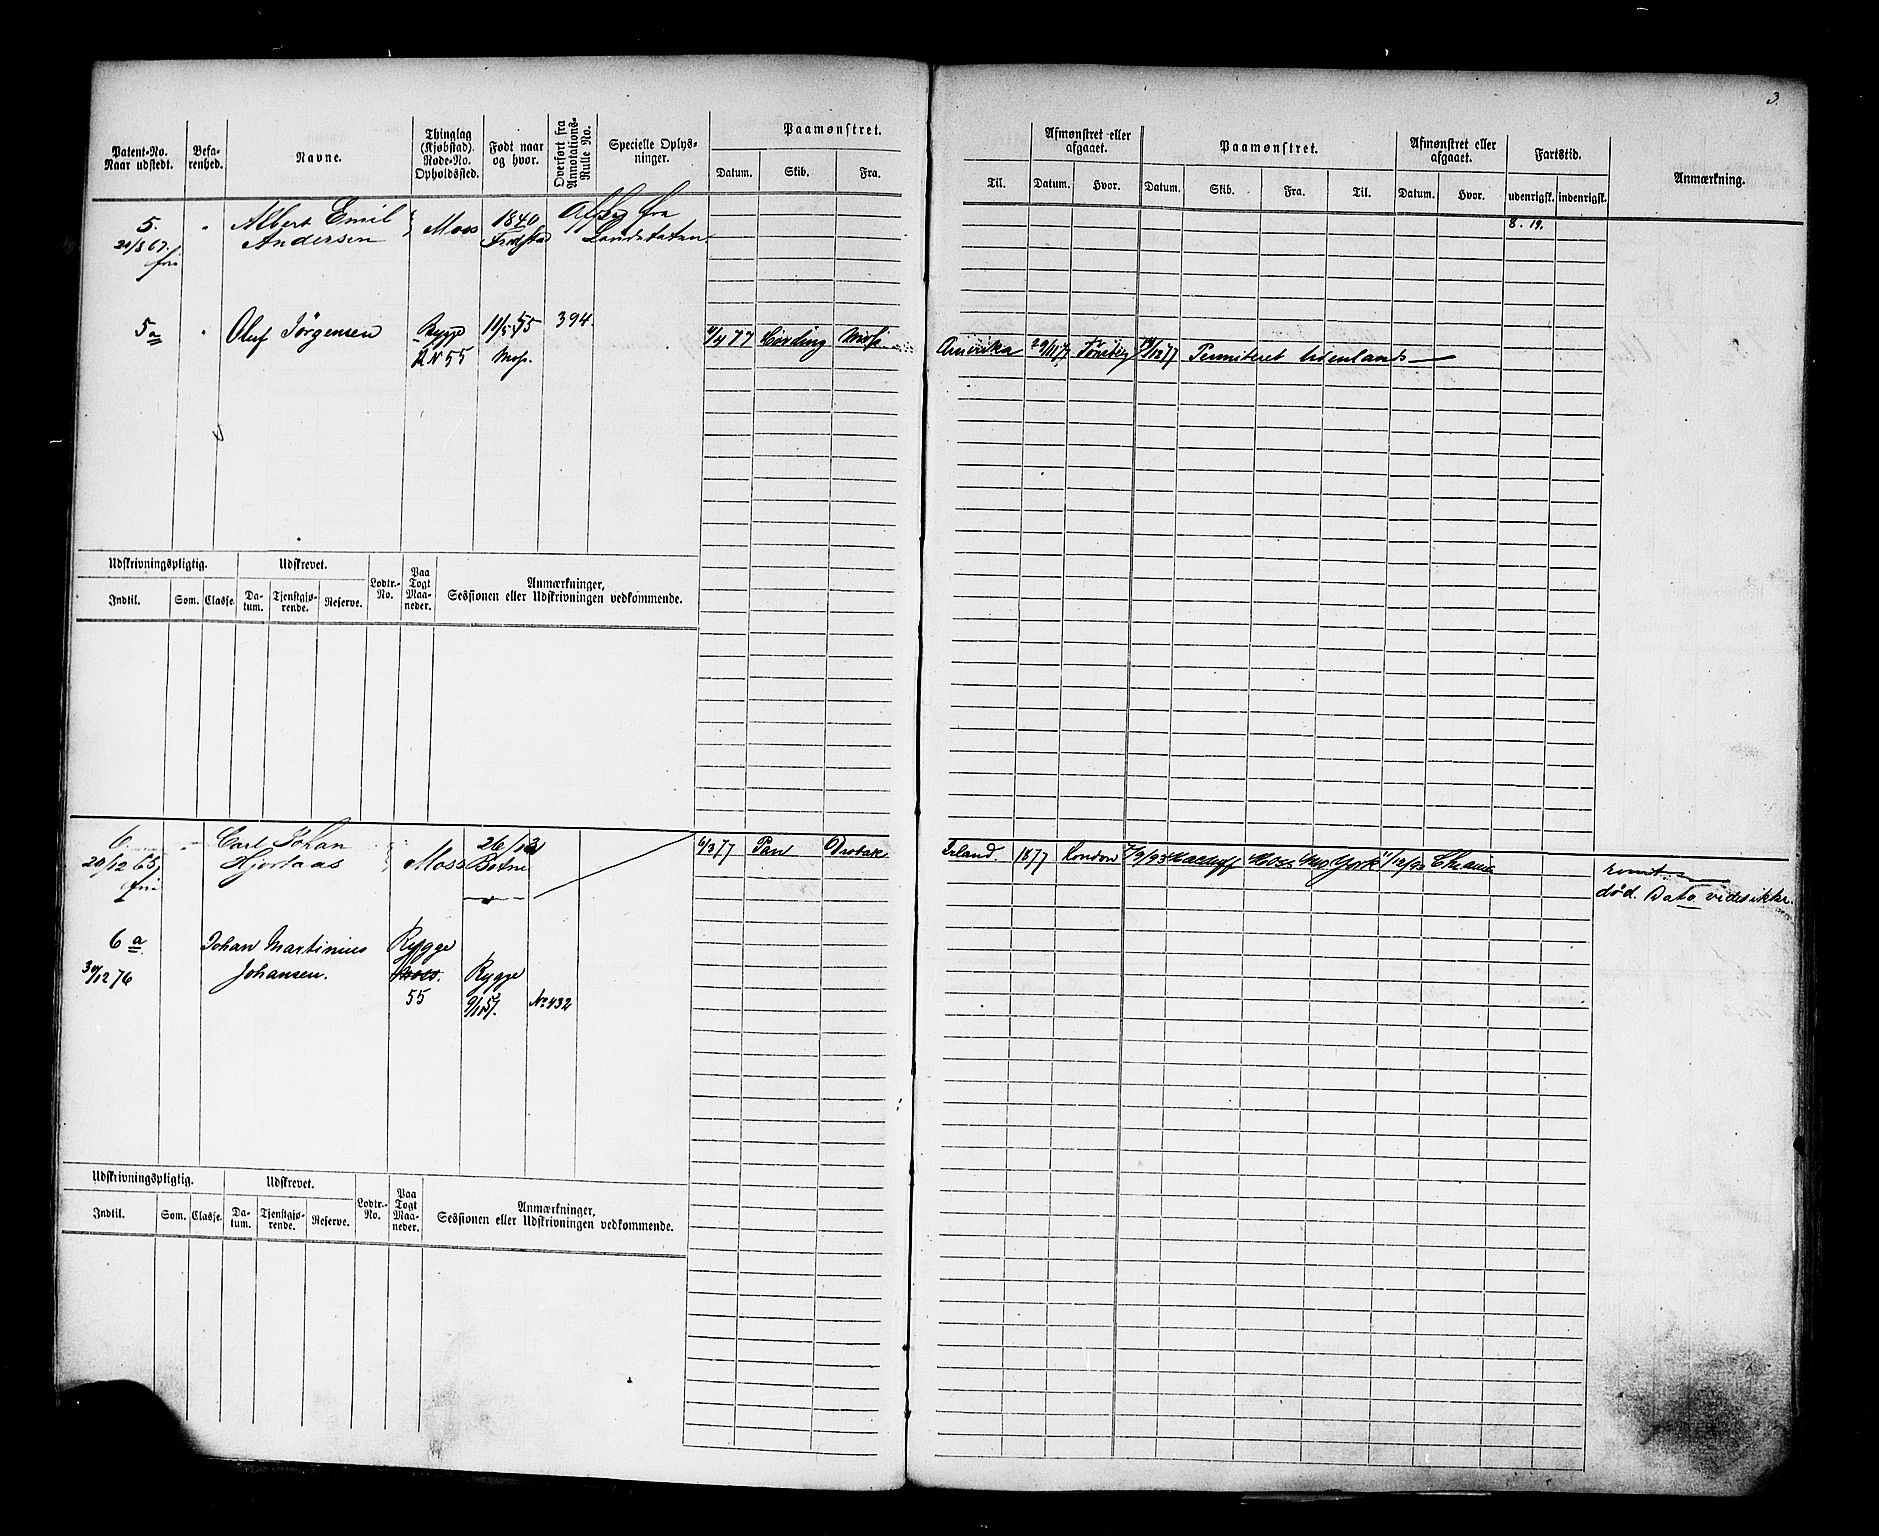 3.
Patent-No. Naar udstedt.
Befarenhed.
Navne.
Thinglag (Kjøbstad). Rode-No. Opholdssted.
Født naar og hvor.
Overført fra Annotations-Rulle No.
Specielle Oplysninger.
Paamønstret.
Datum. Skib. Fra.
Til.
Afmønstret eller afgaaet.
Datum. Hvor.
Paamønstret.
Datum. Skib. Fra. Til.
Afmønstret eller afgaaet.
Datum. Hvor.
Fartstid.
udenrigsk. indenrigsk.
Anmærkning.
5. " Albert Emil Moss 1840 fra 8. 19.
Andersen Fredstad Landetaten.
fri
5a " Oluf Jørgensen Rygge 11/5 55 394.
55 Moss.
11/4 77 Hörding Moss Amerika 29/11 77 Permiteret Udenlands
Udskrivningspligtig. Udskrevet. Lodtr.-No. Paa Togt Maaneder. Anmærkninger, Sessionen eller Udskrivningen vedkommende.
Indtil. Som. Classe. Datum. Tjenstgjørende. Reserve.
6 " Carl Johan 26/1
20/12 65 Hjortaas Moss Botne
fri
6/3 77 Pan Drøbak Irland. 1877 London 7/9/93 Moss New York 1/12/93 Chrania
død. Dato vides ikke.
6a Johan Martinius Rygge
30/12 76 Johansen. Moss. Rygge
55 No 432
Udskrivningspligtig. Udskrevet. Lodtr.-No. Paa Togt Maaneder. Anmærkninger, Sessionen eller Udskrivningen vedkommende.
Indtil. Som. Classe. Datum. Tjenstgjørende. Reserve.